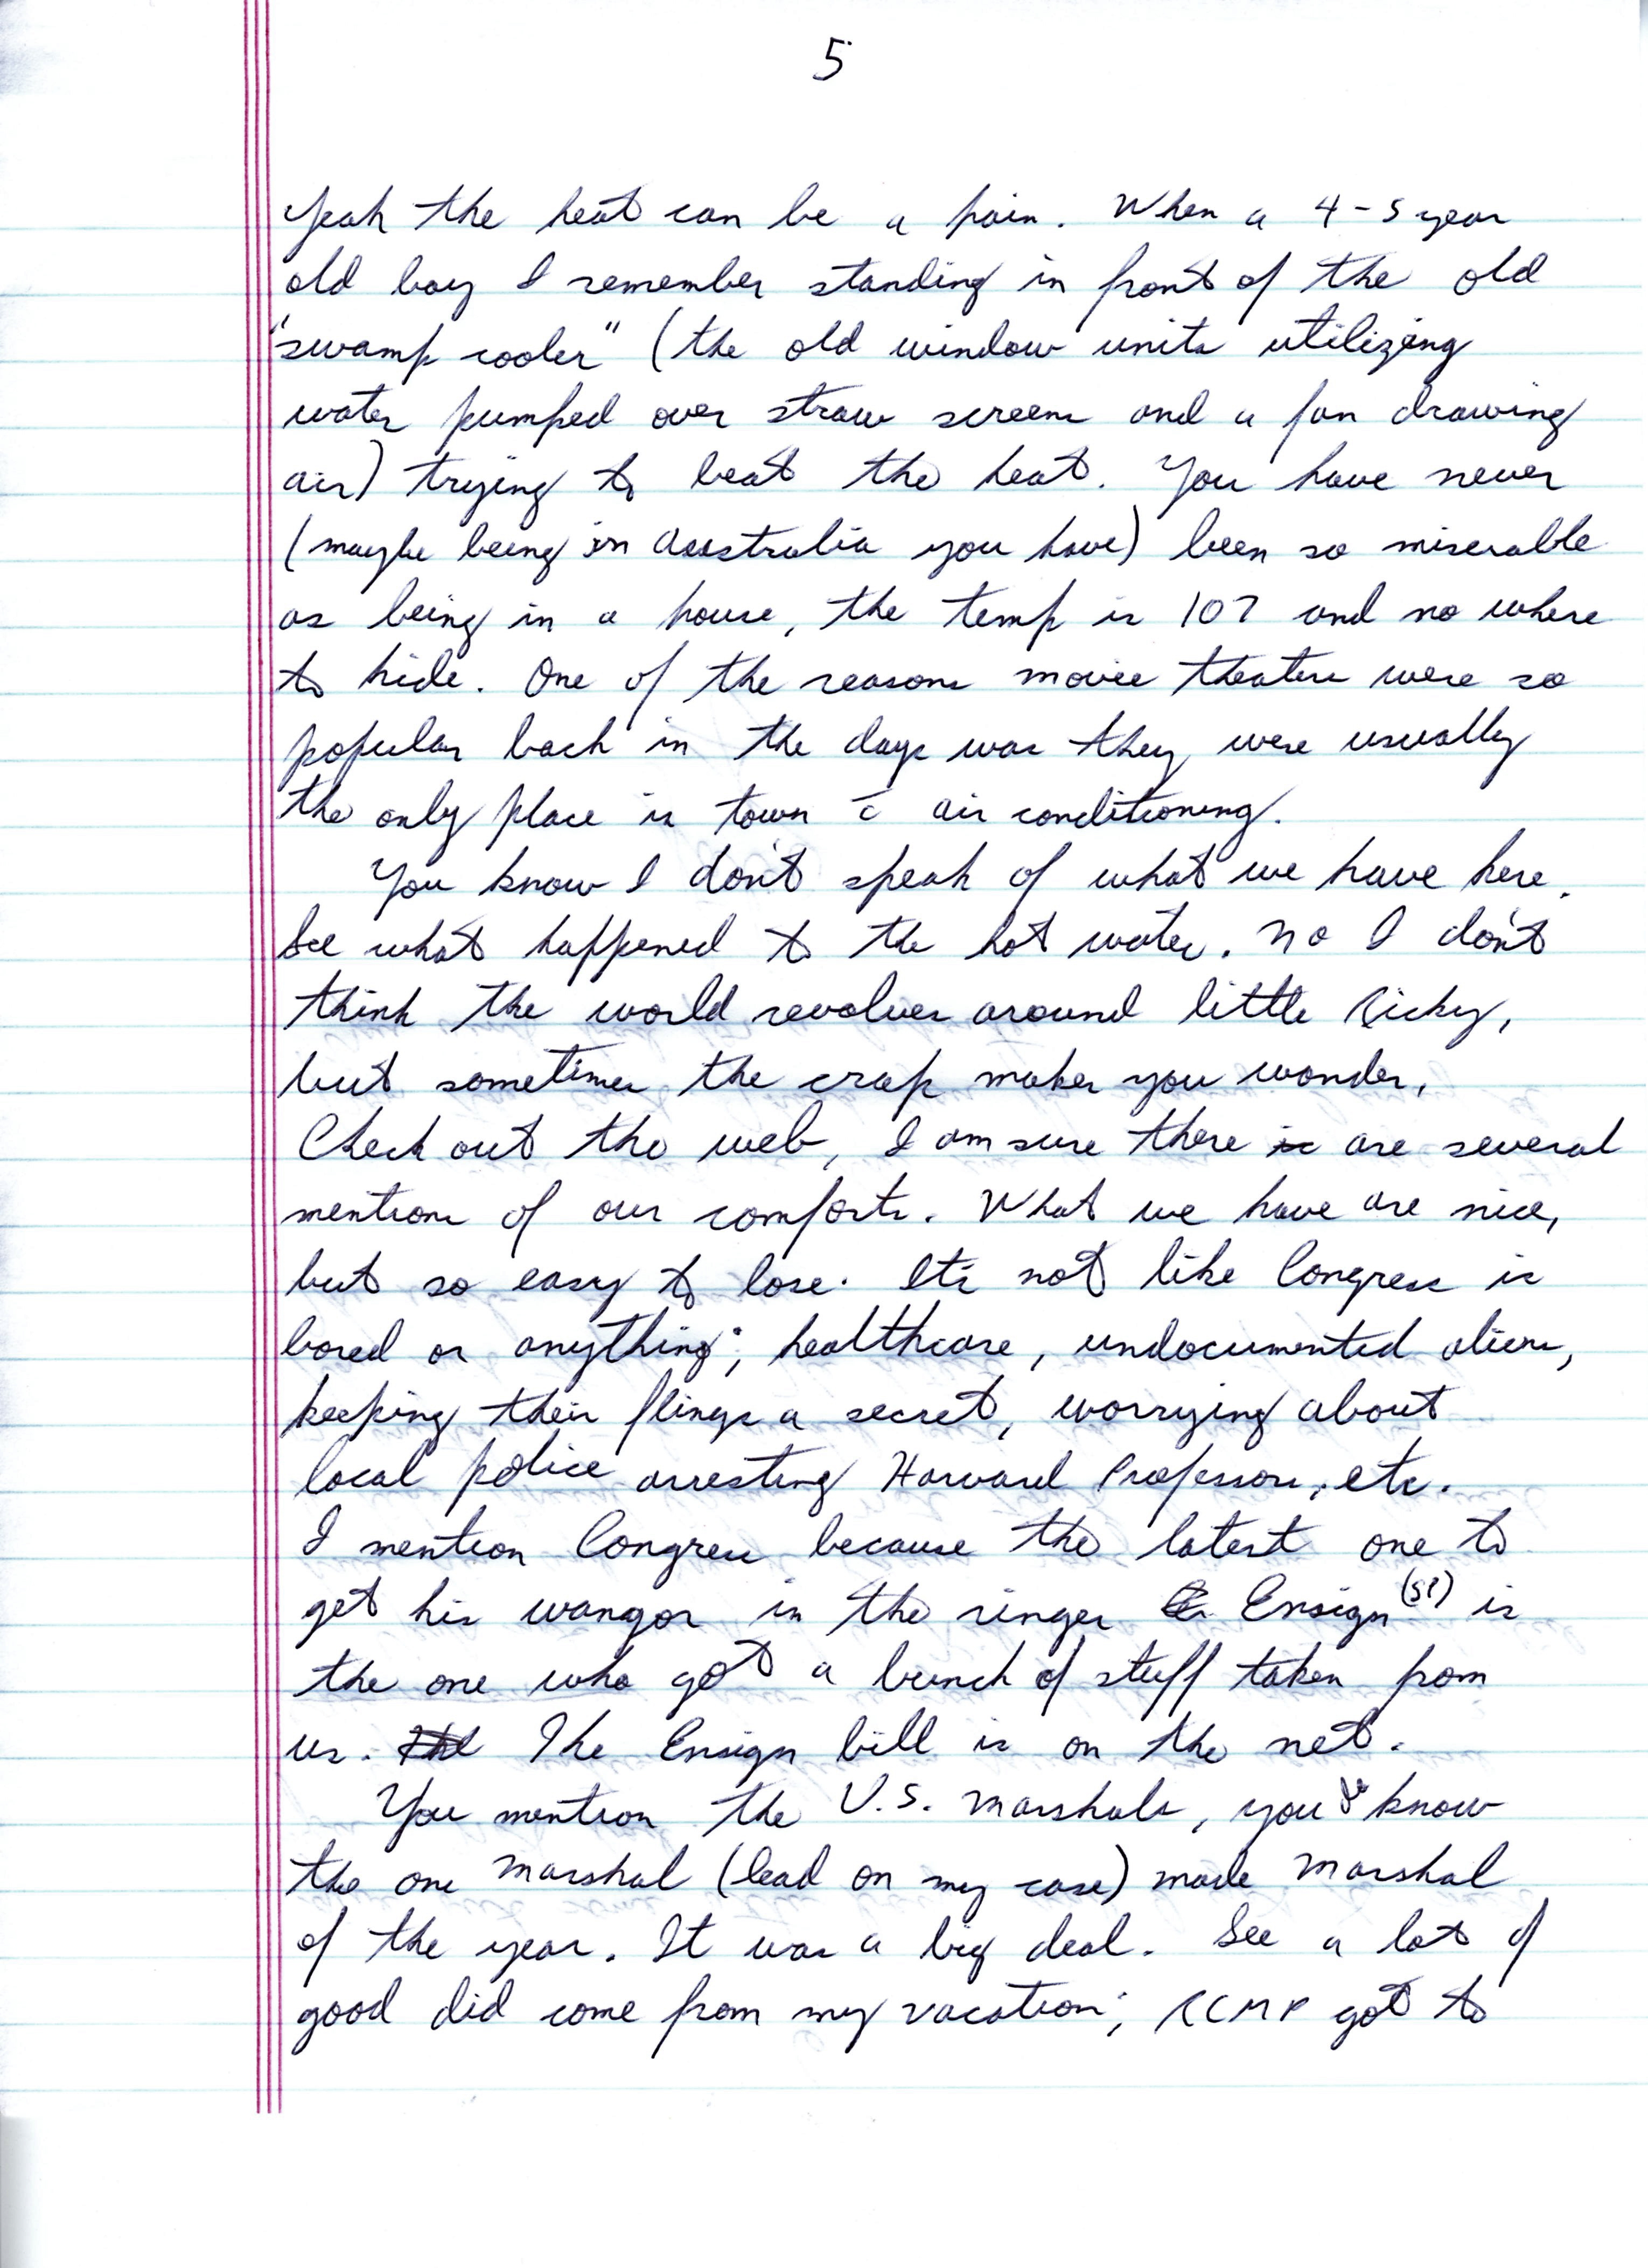 5
Yeah the heat can be a pain. When a 4-5 year
old boy I remember standing in front of the old
"swamp cooler" (the old window units utilizing
water pumped over straw screens and a fan drawing
air) trying to beat the heat. You have never
(maybe being in Australia you have) been so miserable
as being in a house, the temp is 107 and no where
to hide. One of the reasons movie theaters were so
popular back in the days was they were usually
the only place in town c̄ air conditioning.
You know I don't speak of what we have here.
See what happened to the hot water. No I don't
think the world revolves around little Ricky,
but sometimes the crap makes you wonder.
Check out the web, I am sure there is are several
mentions of our comforts. What we have are nice,
but so easy to lose. Its not like Congress is
bored or anything; healthcare, undocumented aliens,
keeping their flings a secret, worrying about
local police arresting Harvard Professors, etc.
I mention Congress because the latest one to
get his wangor in the ringer Ensign (S?) is
the one who got a bunch of stuff taken from
us. The Ensign bill is on the net.
You mention the U.S. Marshals, you know
the one Marshal (lead on my case) made Marshal
of the year. It was a big deal. See a lot of
good did come from my vacation; RCMP got to